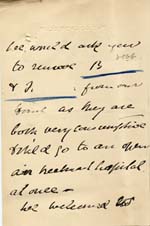 We would ask you
to remove B
& J. from our
home as they are
both very consumptive
& shld go to an open
air treatment hospital
at once —
We welcomed